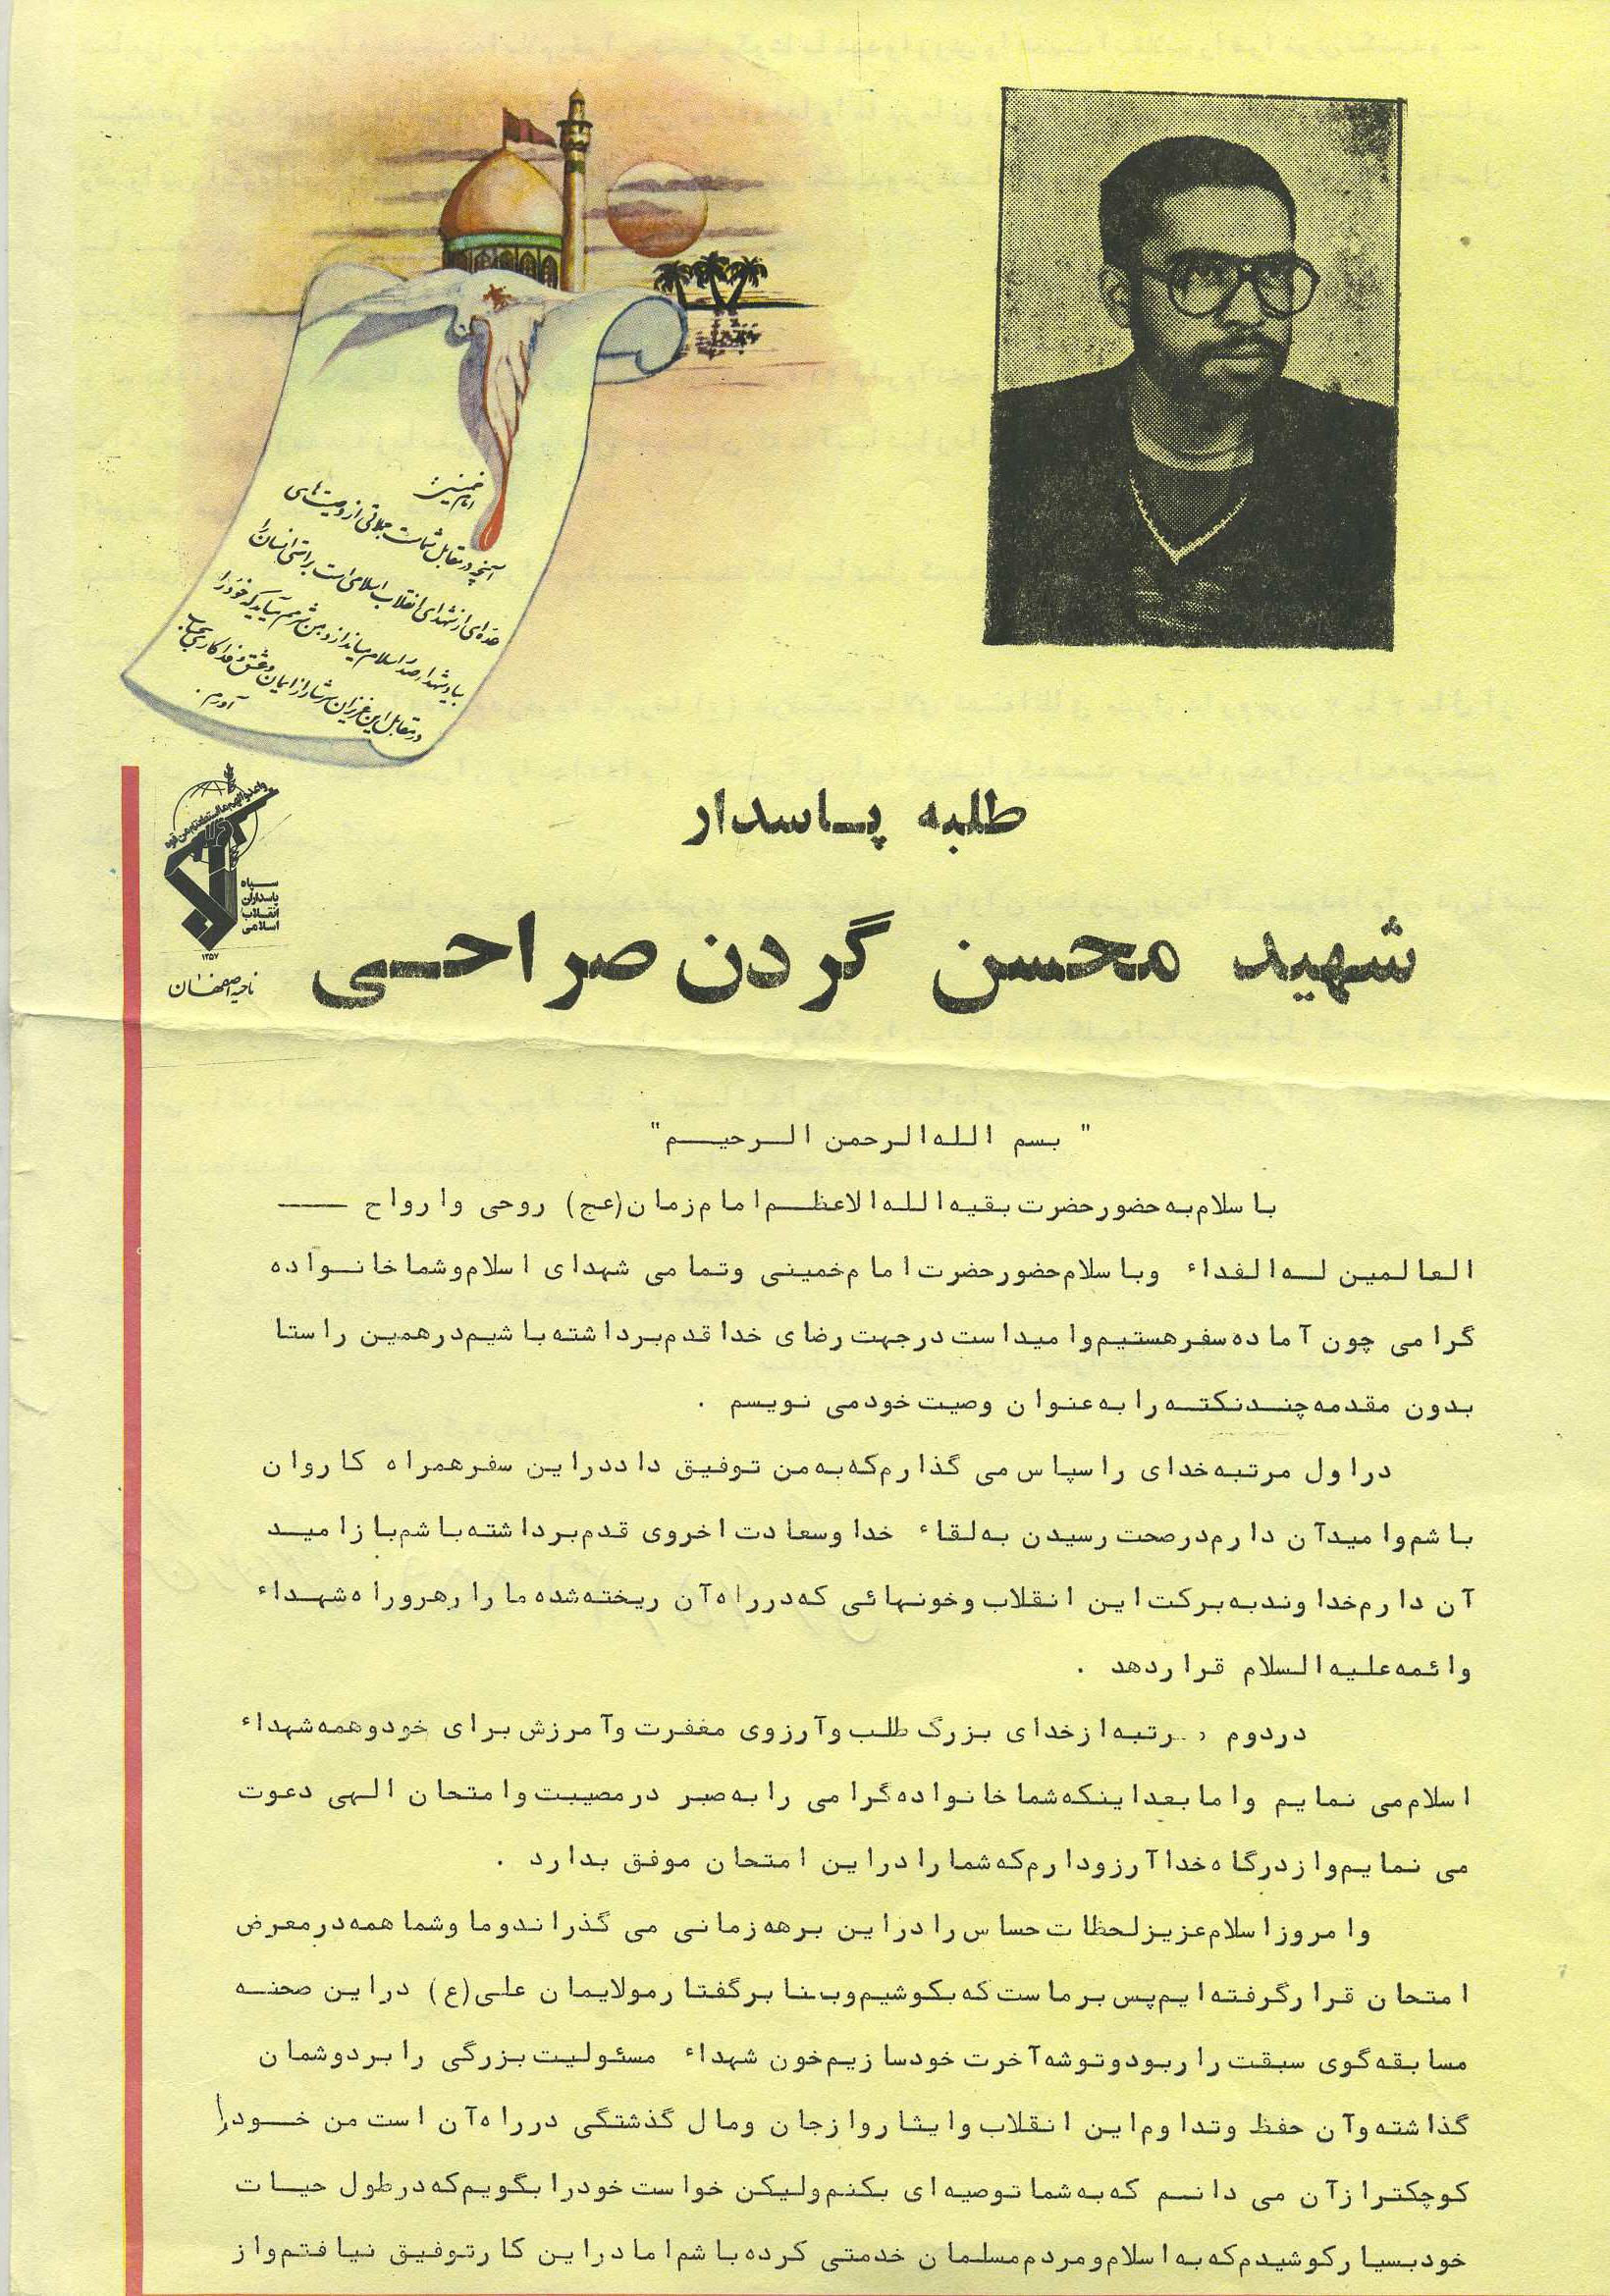 امام خمینی:
آنچه در مقابل شماست جملاتی از وصیت‌های
عده‌ای از شهدای انقلاب اسلامی است براستی انسان را
بیاد شهدا صدر اسلام میاندازد و من شرمم میآید که خود را
در مقابل این عزیزان سرشار از ایمان و عشق و فداکاری بحساب
آورم.
واعدوا لهم ما استطعتم من قوة
سپاه
پاسداران
انقلاب
اسلامی
۱۳۵۷
ناحیه اصفهان
طلبه پاسدار
شهید محسن گردن صراحی
" بسم الله الرحمن الرحیم "
با سلام به حضور حضرت بقیه الله الاعظم امام زمان (عج) روحی و ارواح
العالمین له الفداء و با سلام حضور حضرت امام خمینی و تمامی شهدای اسلام و شما خانواده
گرامی چون آماده سفر هستیم و امید است در جهت رضای خدا قدم برداشته باشیم در همین راستا
بدون مقدمه چند نکته را به عنوان وصیت خود می نویسم .
در اول مرتبه خدای را سپاس می گذارم که به من توفیق داد در این سفر همراه کاروان
باشم و امید آن دارم در صحت رسیدن به لقاء خدا و سعادت اخروی قدم برداشته باشم باز امید
آن دارم خداوند به برکت این انقلاب و خونهائی که در راه آن ریخته شده ما را رهرو راه شهداء
و ائمه علیه السلام قرار دهد .
در دوم مرتبه از خدای بزرگ طلب و آرزوی مغفرت و آمرزش برای خود و همه شهداء
اسلام می نمایم و اما بعد اینکه شما خانواده گرامی را به صبر در مصیبت و امتحان الهی دعوت
می نمایم و از درگاه خدا آرزو دارم که شما را در این امتحان موفق بدارد .
و امروز اسلام عزیز لحظات حساس را در این برهه زمانی می گذراند و ما و شما همه در معرض
امتحان قرار گرفته ایم پس بر ماست که بکوشیم و بنا بر گفتار مولایمان علی (ع) در این صحنه
مسابقه گوی سبقت را ربود و توشه آخرت خود سازیم خون شهداء مسئولیت بزرگی را بر دوشمان
گذاشته و آن حفظ و تداوم این انقلاب و ایثار و از جان و مال گذشتگی در راه آن است من خود را
کوچکتر از آن می دانم که به شما توصیه ای بکنم ولیکن خواست خود را بگویم که در طول حیات
خود بسیار کوشیدم که به اسلام و مردم مسلمان خدمتی کرده باشم اما در این کار توفیق نیافتم و از